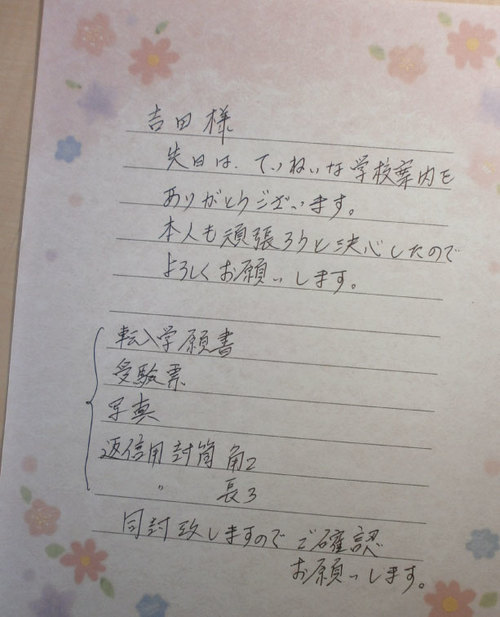 吉田様
先日は、ていねいな学校案内を
ありがとうございます。
本人も頑張ろうと決心したので
よろしくお願いします。
転入学願書
受験票
写真
返信用封筒 角2
〃 長3
同封致しますのでご確認
お願いします。